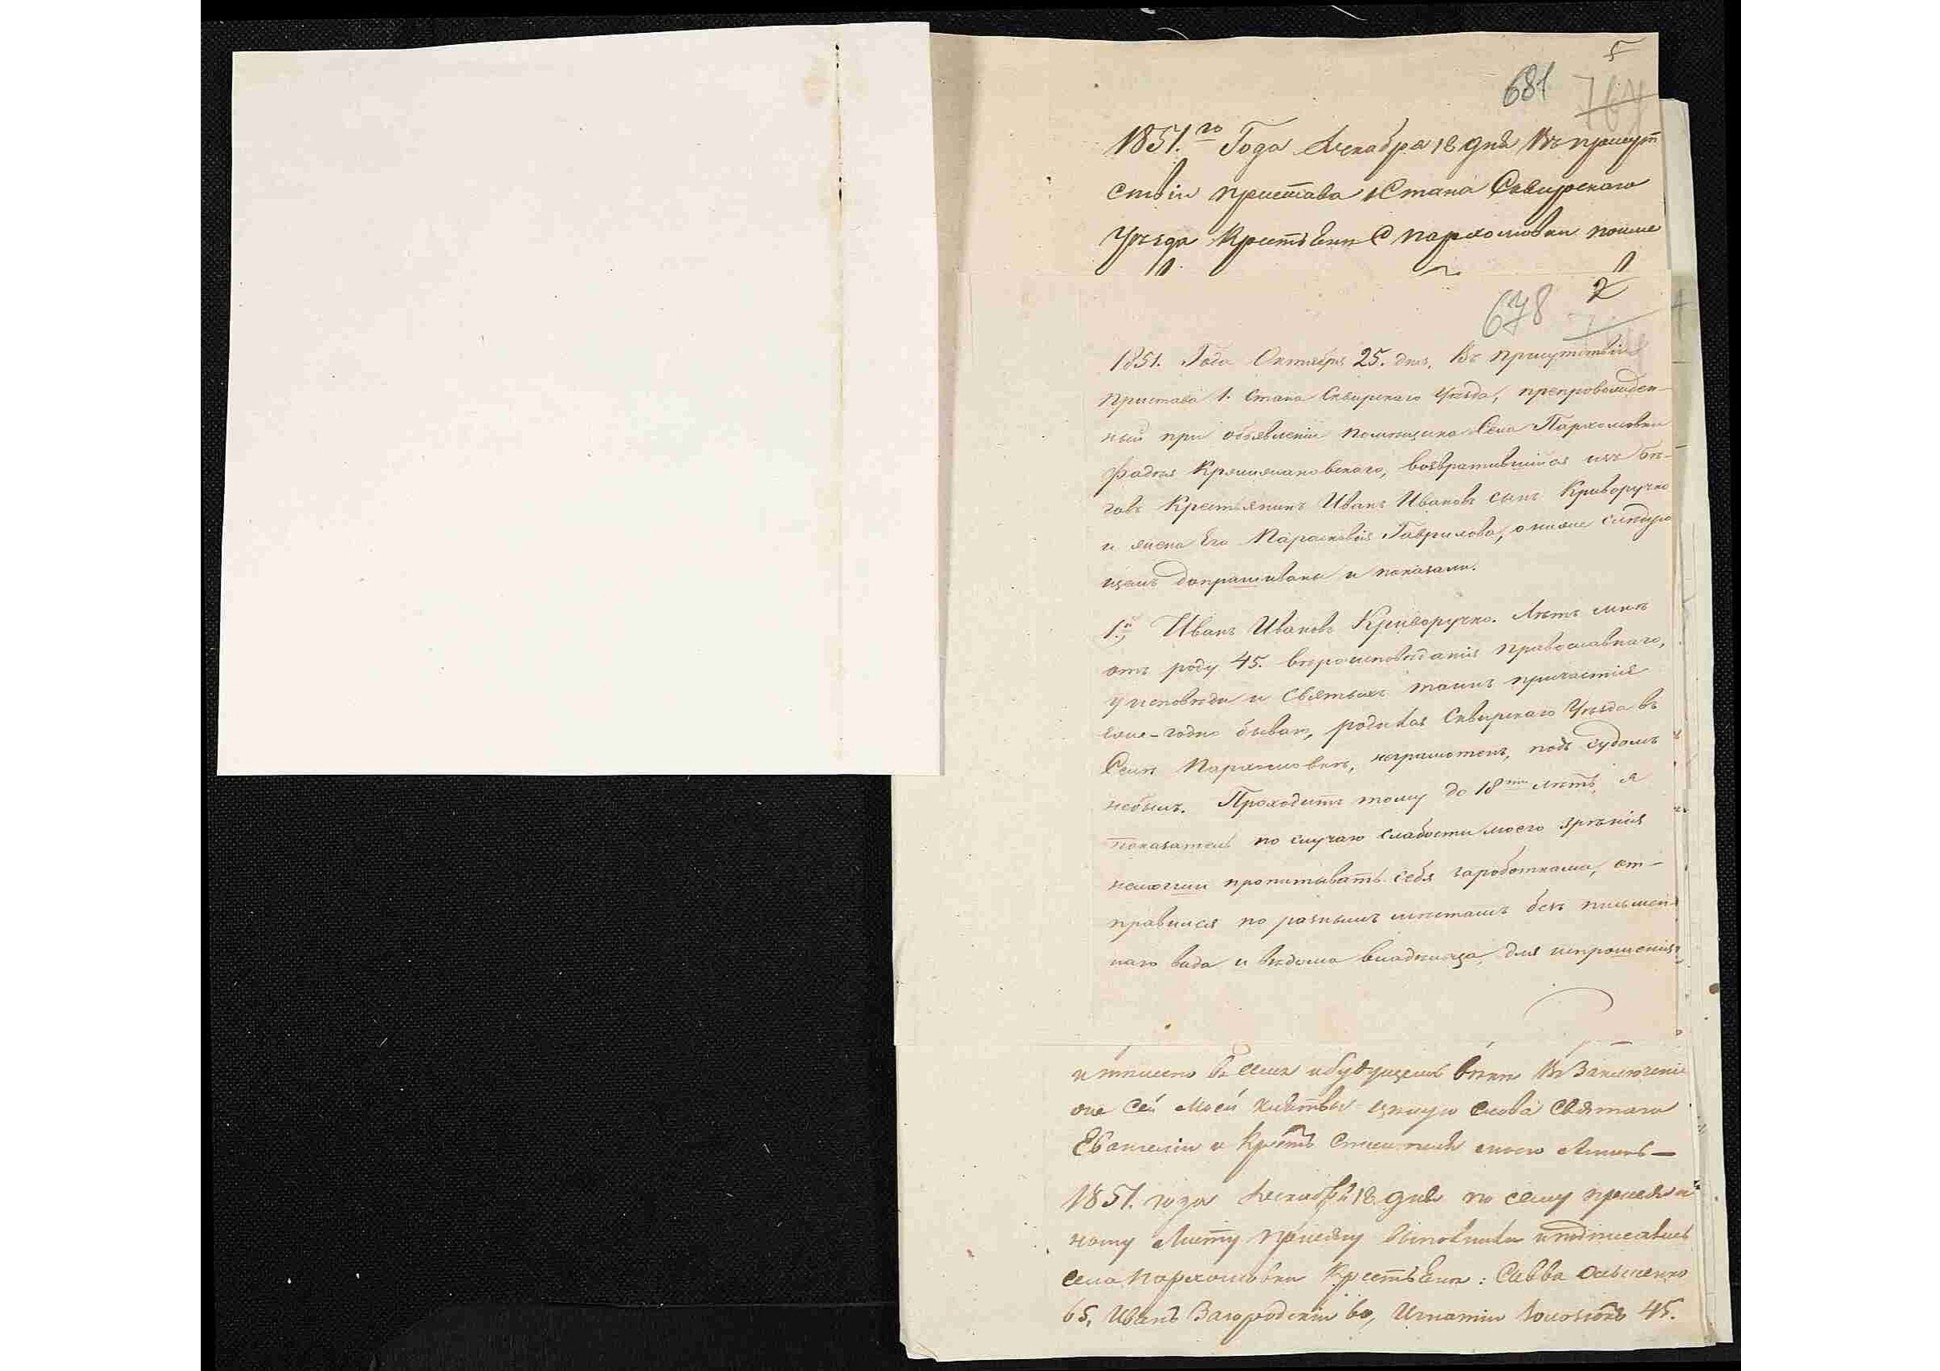 5
681
767
1851.го Года Декабря 18 дня Въ присут
ствіи пристава 1 Стана Сквирского
Уѣзда Крестьяни С Пархомовки поиме
2
678
1851. Года Октября 25. дня, Въ присутствіи
Пристава 1. Стана Сквирскаго Уѣзда, препровожден-
ный при объявленіи помещика Села Пархомовки
Фадея возвратившійся изъ бѣ-
говъ Крестьянинъ Иванъ Ивановъ сынъ Криворучко
и жена Его Парасковія Гаврилова, о ниже слѣдую
щемъ допрашиваны и показали.
1.й Иванъ Ивановъ Криворучко. Лѣтъ мнѣ
отъ роду 45. вѣроисповѣданія Православнаго,
у исповѣди и Святыхъ таинъ причастія
еже-годно бываю, родился Сквирскаго Уѣзда въ
Селѣ Пархомовкѣ, неграмотенъ, подъ судомъ
небылъ. Проходитъ тому до 18ти лѣтъ, я
показатель по случаю слабости моего зрѣнія
немогши пропитывать себя заработками, от-
правился по разнымъ мѣстамъ безъ письмен-
наго вида и вѣдома владельца, для испрошенія
въ семъ и будущемъ вѣкѣ Въ Заключеніи
же сей моей клятвы цѣлую слова Святаго
Евангелія и Крестъ Спасителя моего Аминь —
1851. года Декабря 18 дня по сему присяж
ному листу присягу исполнили и подписались
села Пархомовки Крестьяни: Савва
65, Иванъ Загородскій 60, Игнатій 45.